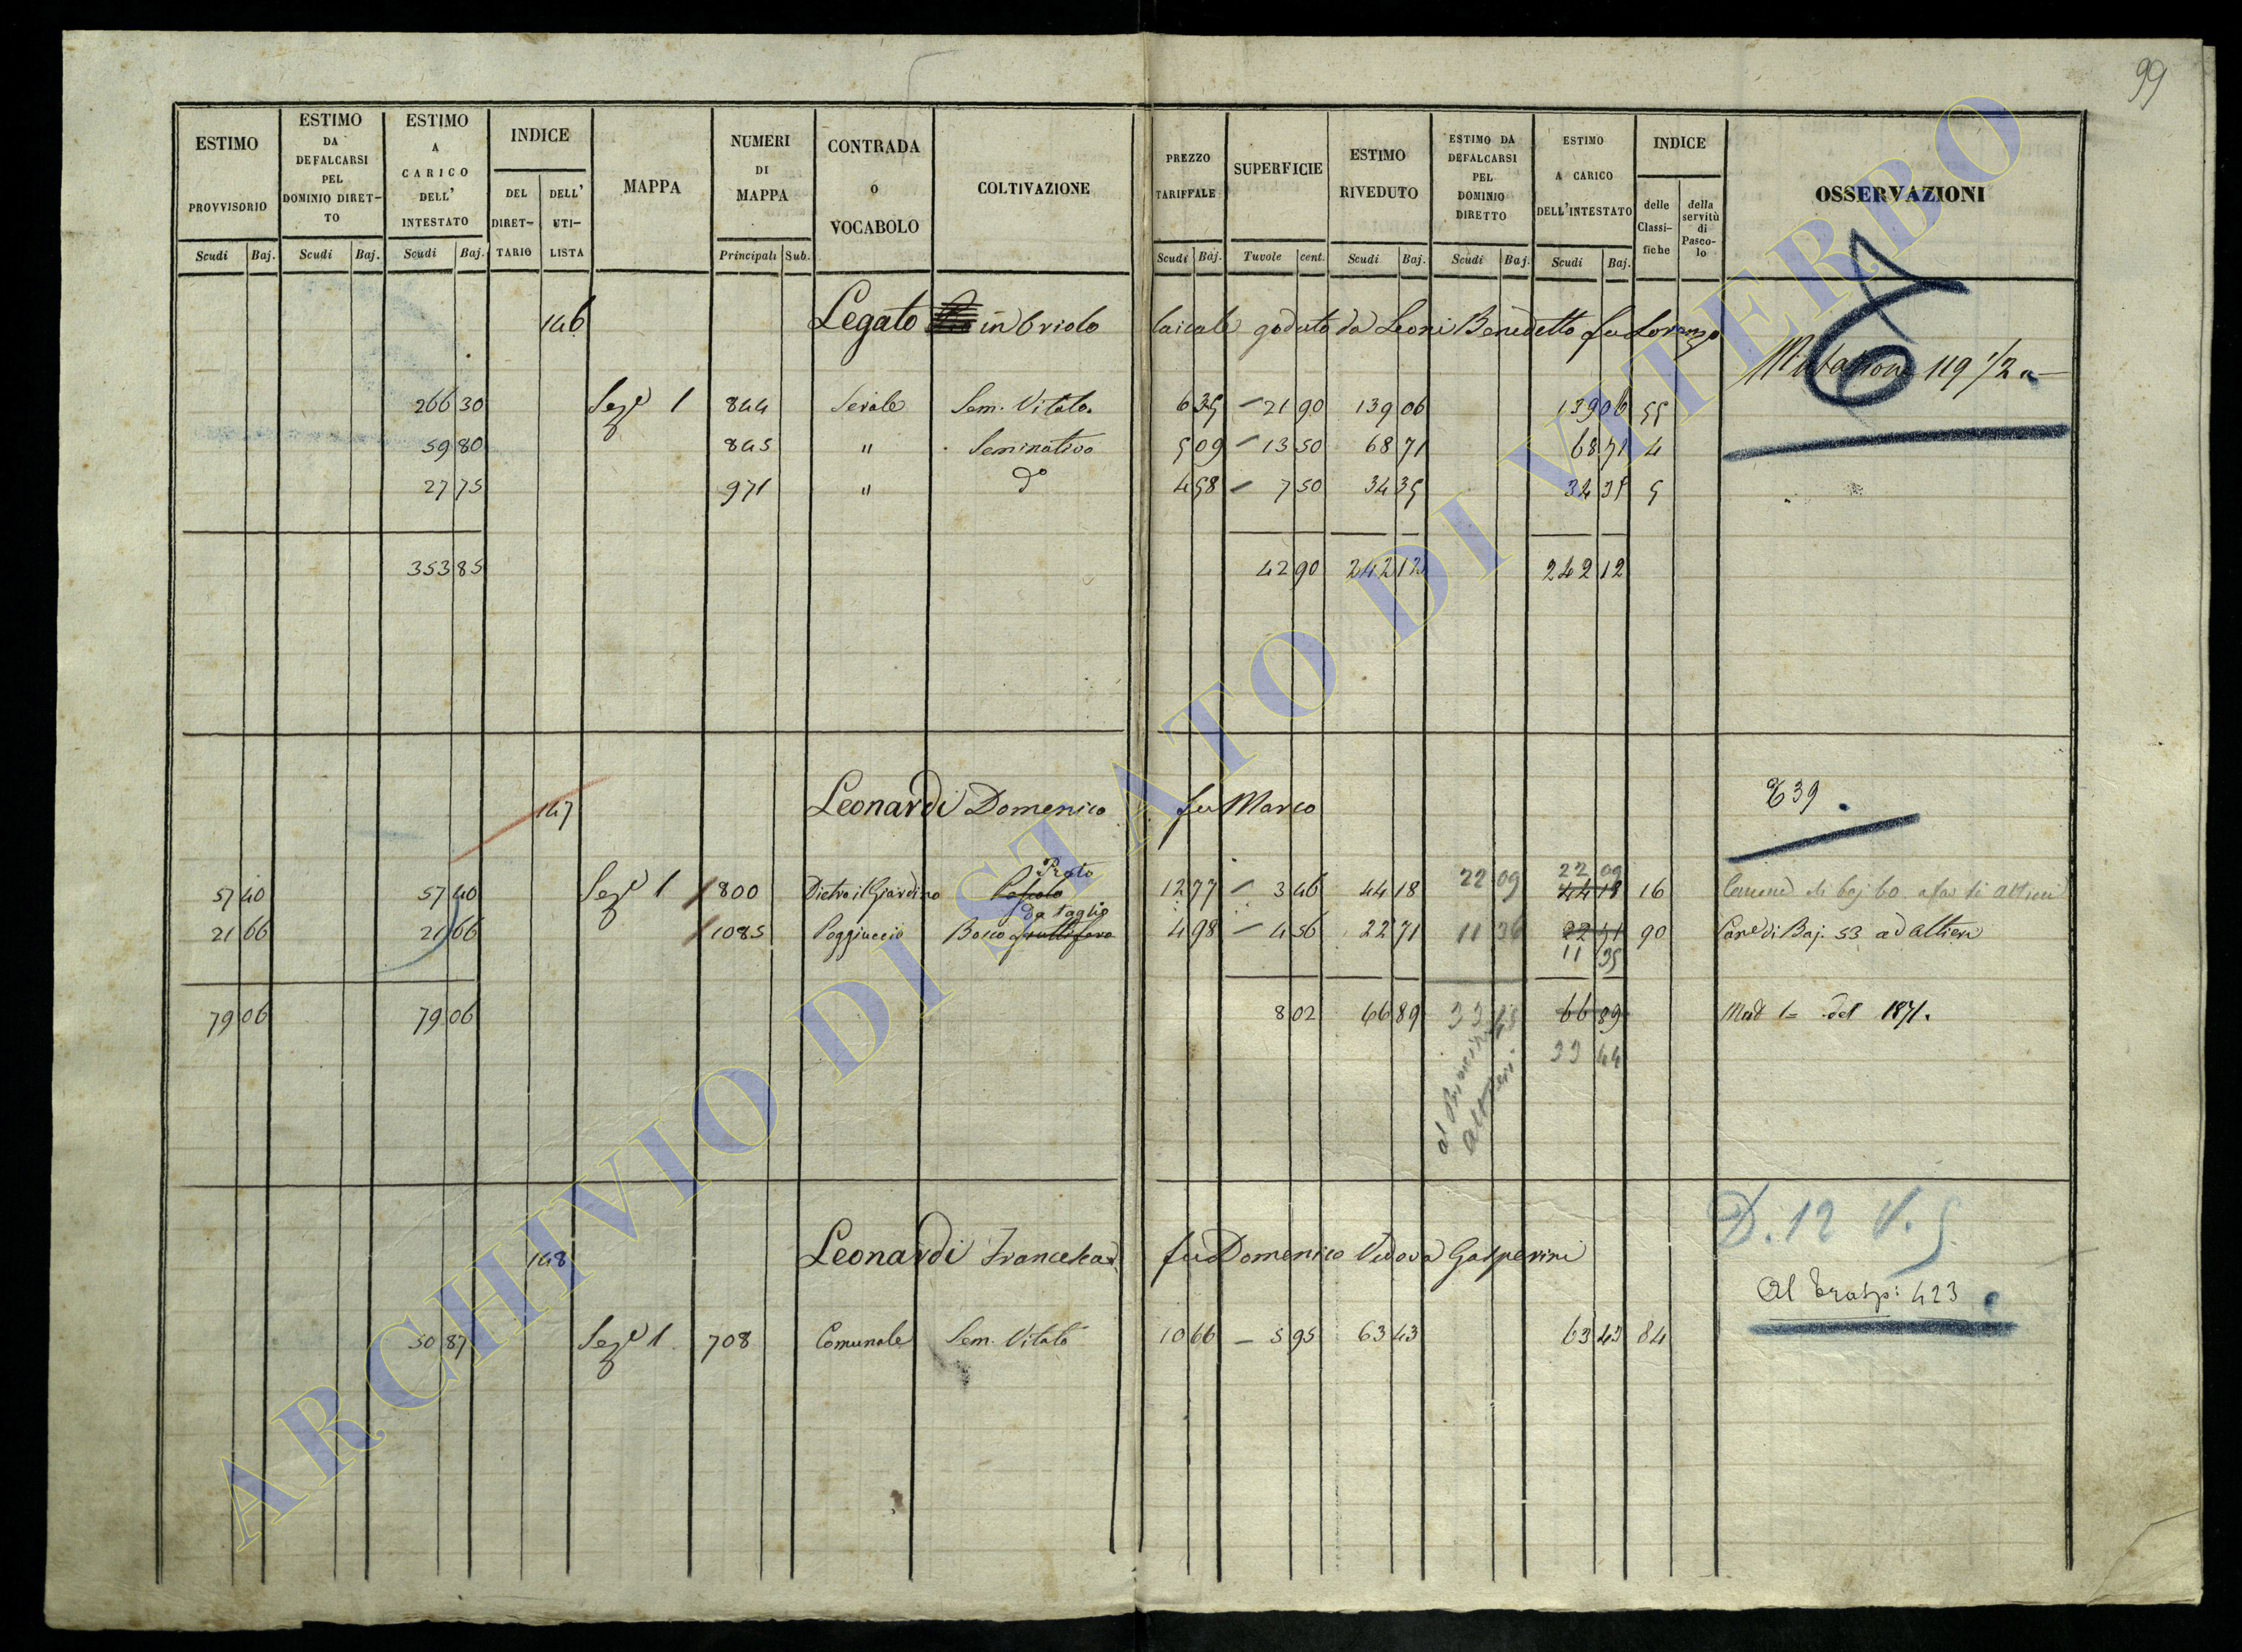 99
ESTIMO PROVVISORIO Scudi Baj.
ESTIMO DA DEFALCARSI PEL DOMINIO DIRET-TO Scudi Baj.
ESTIMO A CARICO DELL' INTESTATO Scudi Baj.
INDICE DEL DIRET-TARIO DELL' UTI-LISTA
MAPPA
NUMERI DI MAPPA Principali Sub.
CONTRADA ó VOCABOLO
COLTIVAZIONE
PREZZO TARIFFALE Scudi Baj.
SUPERFICIE Tavole cent.
ESTIMO RIVEDUTO Scudi Baj.
ESTIMO DA DEFALCARSI PEL DOMINIO DIRETTO Scudi Baj.
ESTIMO A CARICO DELL'INTESTATO Scudi Baj.
INDICE delle Classi-fiche della servitù di Pasco-lo
OSSERVAZIONI
146 Legato in Oriolo laicale goduto da Leoni Benedetto fu Lorenzo
Mutazione 119 1/2
266 30 Sez.e 1 844 Sem. Vitato 6 35 21 90 139 06 139 06 55
59 80 845 " Seminativo 5 09 13 50 68 71 68 71 4
27 75 971 " do 4 58 7 50 34 35 34 35 5
353 85 42 90 242 12 242 12
147 Leonardi Domenico fu Marco
39
Prato 22 09 22 09
57 40 57 40 Sez.e 1 800 Dietro il Giardino Pascolo 12 77 3 46 44 18 44 18 16
da taglio
21 66 21 66 1085 Poggiuccio Bosco fruttifero 4 98 4 56 22 71 11 36 22 71 90 Can.e di Baj. 53 ad Altieri
11 35
79 06 79 06 8 02 66 89 33 45 66 89 del 1871.
33 44
al Principe Altieri
D. 12 V. 5
148 Leonardi Francesca fu Domenico Vedova Gasperini
Al Trasp: 423
50 87 Sez.e 1 708 Comunale Sem. Vitato 10 66 5 95 63 43 63 43 84
ARCHIVIO DI STATO DI VITERBO